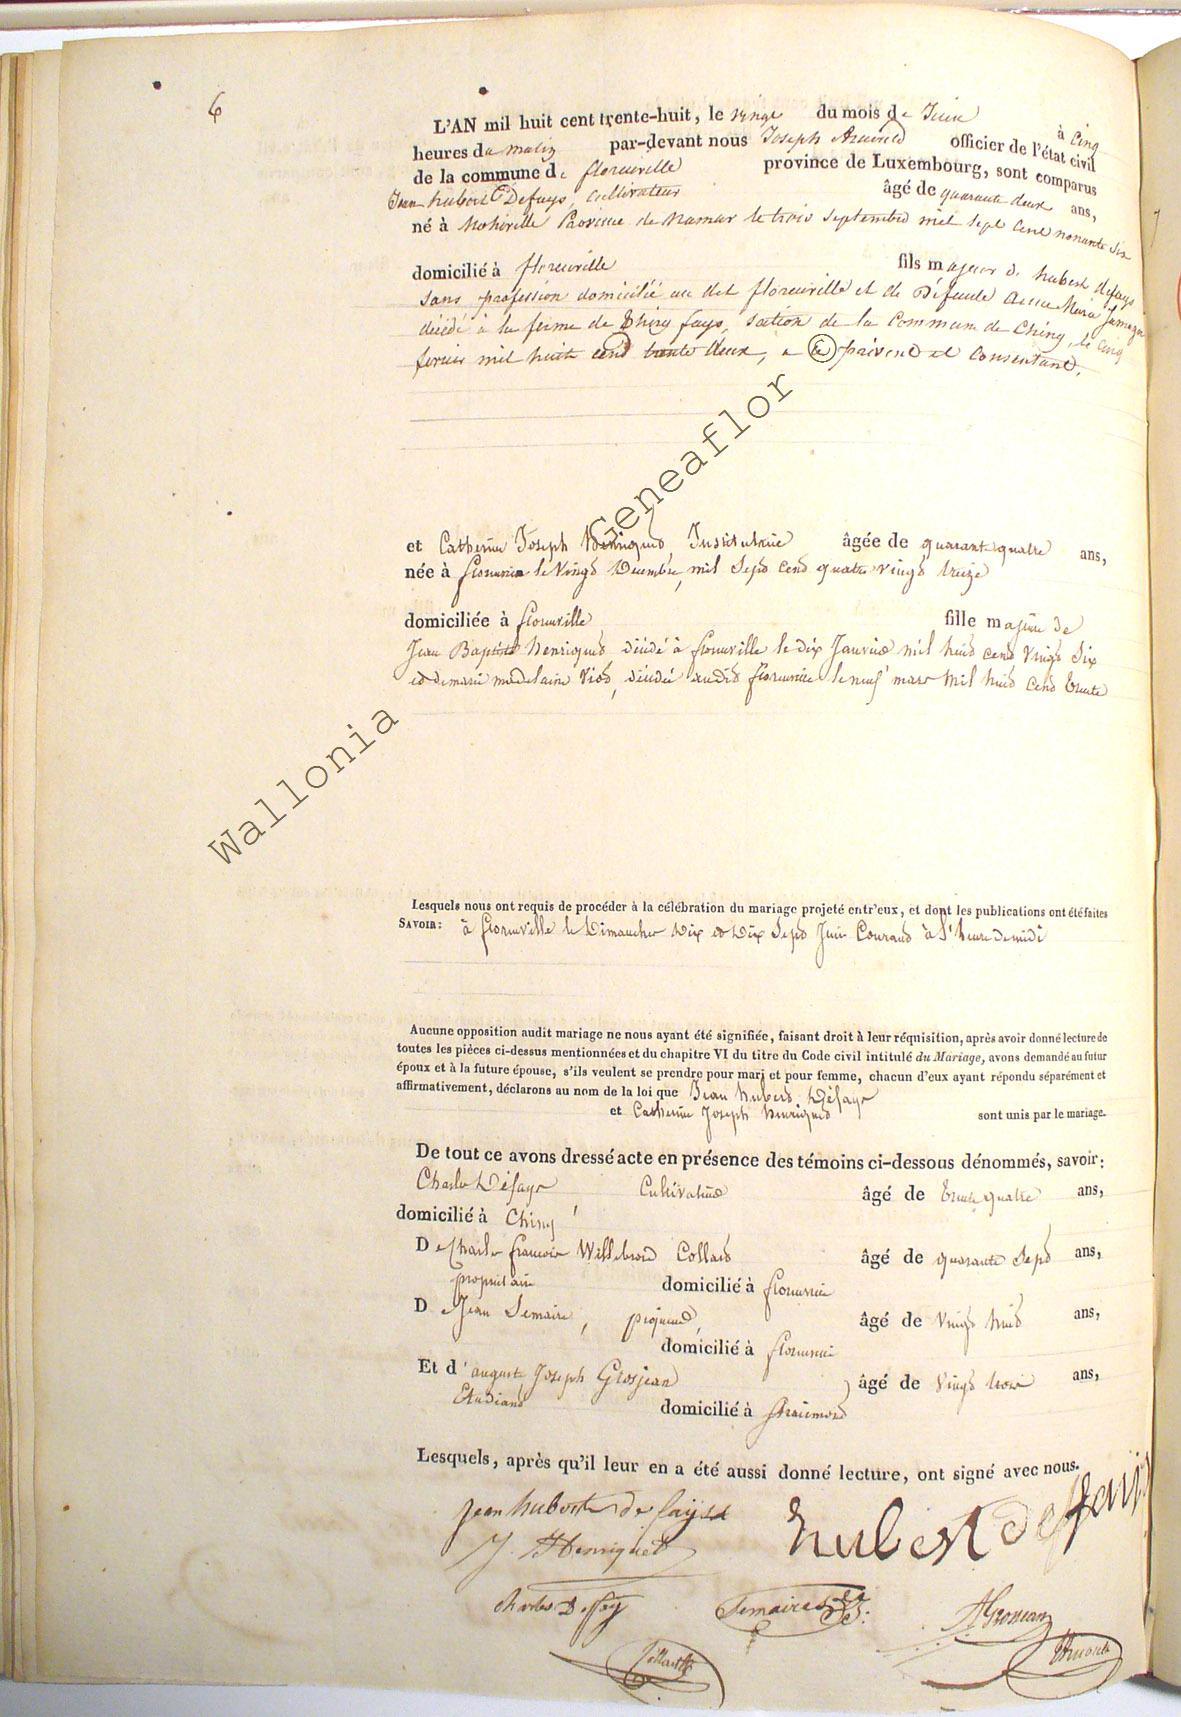 6
L'AN mil huit cent trente-huit, le vingt du mois de Juin à cinq
heures du matin par-devant nous Joseph officier de l'état civil
de la commune de florenville province de Luxembourg, sont comparus
Jean hubert Defays, cultivateur âgé de quarante deux ans,
né à Province de Namur le trois Septembre mil sept cent nonante six
domicilié à florenville fils majeur de hubert defays
sans profession domicilié au dit florenville et de Défunte Anne Marie
décédé à la ferme de Chiny fays, section de la Commune de Chiny, le cinq
fevrier mil huit cent trente deux, a ce présent et consentant.
et Catherine Joseph Henriquet, Institutrice âgée de quarante quatre ans,
née à florenville le vingt Decembre mil Sept cent quatre vingt treize
domiciliée à florenville fille majeure de
Jean Baptiste Henriquet décédé à florenville le dix Janvier mil huit cent vingt Six
et de marie madelaine décédée audit florenville le neuf mars mil huit cent trente
Lesquels nous ont requis de procéder à la célébration du mariage projeté entr'eux, et dont les publications ont été faites
SAVOIR: à florenville le Dimanche Dix et Dix Sept Juin Courant à l'heure de midi
Aucune opposition audit mariage ne nous ayant été signifiée, faisant droit à leur réquisition, après avoir donné lecture de
toutes les pièces ci-dessus mentionnées et du chapitre VI du titre du Code civil intitulé du Mariage, avons demandé au futur
époux et à la future épouse, s'ils veulent se prendre pour mari et pour femme, chacun d'eux ayant répondu séparément et
affirmativement, déclarons au nom de la loi que Jean hubert Défays
et Catherine Joseph Henriquet sont unis par le mariage.
De tout ce avons dressé acte en présence des témoins ci-dessous dénommés, savoir:
Charles Défays Cultivateur âgé de trente quatre ans,
domicilié à Chiny
De Charles françois Willebrord Collard âgé de quarante Sept ans,
propriétaire domicilié à florenville
De Jean Lemaire, âgé de vingt huit ans,
domicilié à florenville
Et d'auguste Joseph Grosjean âgé de vingt trois ans,
Etudiant domicilié à Straimont
Lesquels, après qu'il leur en a été aussi donné lecture, ont signé avec nous.
jean hubert de fays hubert
J. Henriquet
Charles Defay Lemaire
Wallonia Geneaflor ©